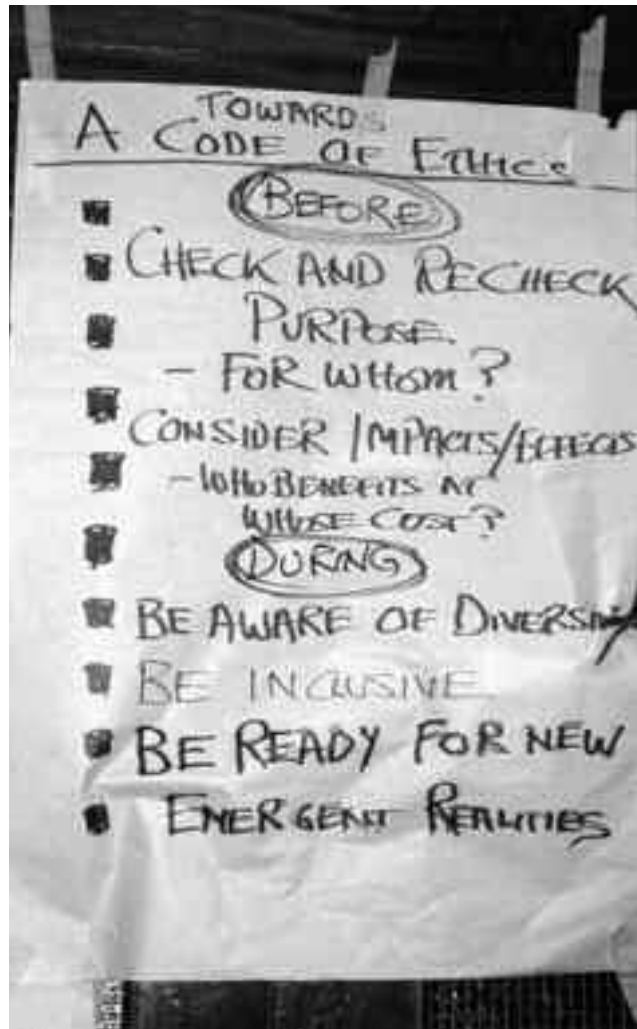 TOWARDS
A CODE OF ETHICS
BEFORE
CHECK AND RECHECK
PURPOSE.
- FOR WHOM?
CONSIDER IMPACTS/EFFECTS
- WHO BENEFITS AT
WHOSE COST?
DURING
BE AWARE OF DIVERSITY
BE INCLUSIVE
BE READY FOR NEW
EMERGENT REALITIES